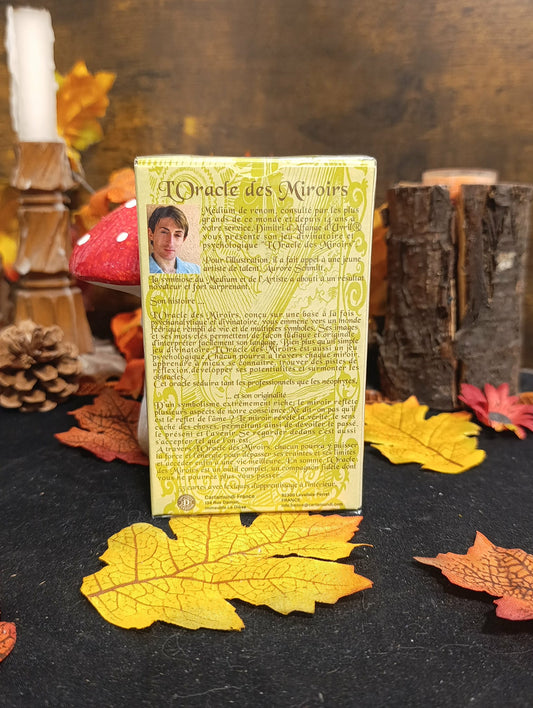 L'Oracle des Miroirs
Médium de renom, consulté par les plus
grands de ce monde et depuis 14 ans à
votre service, Dimitri d'Alfange d'Uvril®
vous présente son jeu divinatoire et
psychologique "L'Oracle des Miroirs"
Pour l'illustration, il a fait appel à une jeune
artiste de talent, Aurore Schmitt,
la symbiose du Médium et de l'Artiste a abouti à un résultat
novateur et fort surprenant.
Son histoire ...
L'Oracle des Miroirs, conçu sur une base à la fois
psychanalytique et divinatoire, vous emmène vers un monde
féérique rempli de vie et de multiples symboles. Ses images
et ses mots clés permettent de façon ludique et originale
d'interpréter facilement son langage. Bien plus qu'un simple
jeu divinatoire, L'Oracle des Miroirs est aussi un jeu
psychologique. Chacun pourra à travers chaque miroir,
apprendre à mieux se connaître, trouver des pistes
d'évolution, développer ses potentialités et surmonter les
obstacles.
Cet oracle séduira tant les professionnels que les néophytes.
... et son originalité.
D'un symbolisme extrêmement riche, le miroir reflète
plusieurs aspects de notre conscience. Ne dit-on pas qu'il
est le reflet de l'âme ? Le miroir révèle la vérité, le sens
caché des choses, permettant ainsi de dévoiler le passé
le présent et l'avenir. Se regarder dedans c'est aussi
s'accepter tel que l'on est.
A travers l'Oracle des Miroirs, chacun pourra y puiser
la force et l'énergie pour dépasser ses craintes et ses limites
et accéder enfin à une vie meilleure. En somme, l'Oracle
des Miroirs est un outil complet, un compagnon fidèle dont
vous ne pourrez plus vous passer.
cartes avec lexiques d'apprentissage à l'intérieur.
Cartamundi France
Immeuble Le
92300 Levallois-Perret
FRANCE